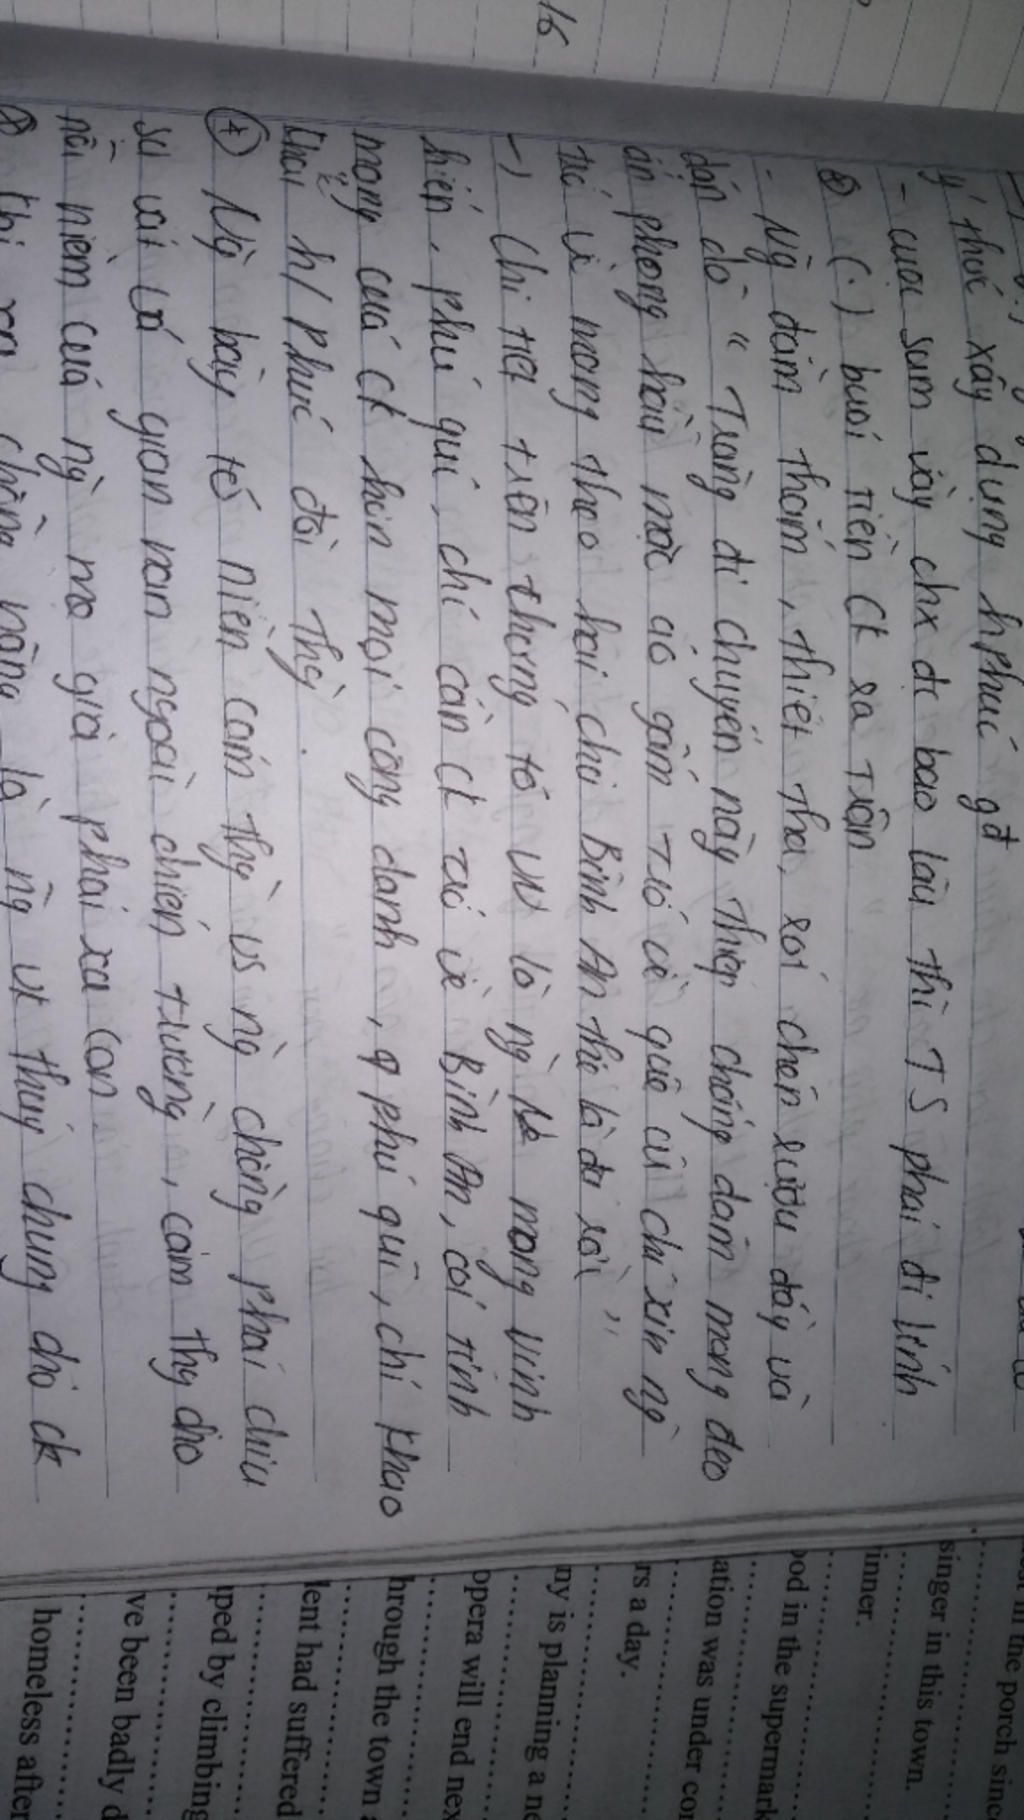 16
ý thức xây dựng hphúc gđ
- cuộc sum vầy chx đc bao lâu thì TS phải đi lính
(.) buổi tiễn ck ra trận
- Ng dặm thắm, thiết tha, rót chén rượu đầy và
dặn dò " Tướng đi chuyến này thiếp chẳng dám mong đeo
ấn phong hầu mặc áo gấm trở về quê cũ chỉ xin ngày
trở về mang theo hai chữ Bình An thế là đủ rồi "
-) Chi tiết trên chứng tỏ VN là ng ko mong vinh
hiển, phú quí, chỉ cần ck trở về Bình An, coi tính
mạng của ck hơn mọi công danh, phú quí, chỉ khao
khát h/phúc đời thg.
(+) Ng bày tỏ niềm cảm thg vs ng chồng phải chịu
sự vất vả gian nan ngoài chiến trường, cảm thg cho
nỗi niềm của ng mẹ già phải xa con
là ng vk thủy chung chờ ck
in the porch since
singer in this town.
inner.
ood in the supermark
ation was under co
rs a day.
ny is planning a ne
opera will end nex
hrough the town
lent had suffered
ped by climbing
ve been badly d
homeless after